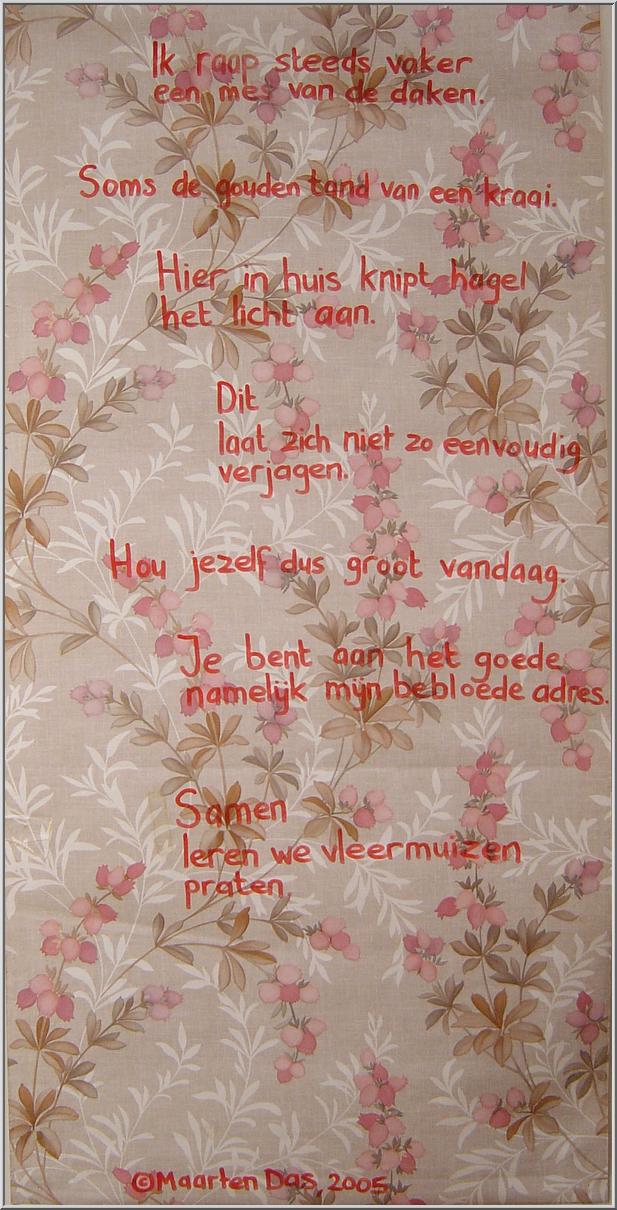 Ik raap steeds vaker
een mes van de daken.
Soms de gouden tand van een kraai.
Hier in huis knipt hagel
het licht aan.
Dit
laat zich niet zo eenvoudig
verjagen.
Hou jezelf dus groot vandaag.
Je bent aan het goede,
namelijk mijn bebloede adres.
Samen
leren we vleermuizen
praten.
©Maarten Das, 2005